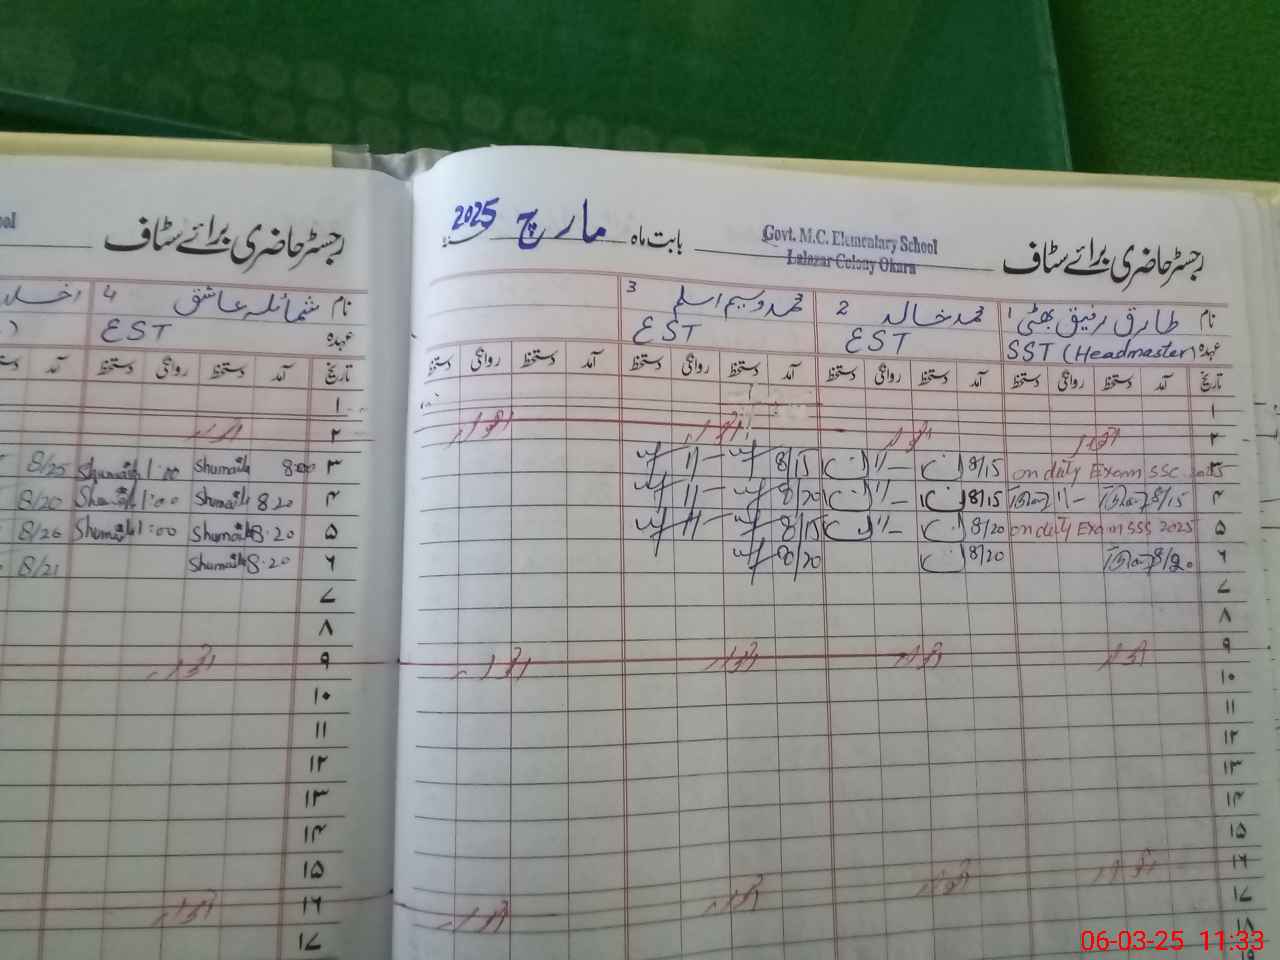 رجسٹر حاضری برائے سٹاف
Govt. M.C. Elementary School
Lalazar Colony Okara
بابت ماہ مارچ 2025
نام 1 طارق رفیق بھٹی 2 محمد خالد 3 محمد وسیم اسلم
عہدہ SST (Headmaster) EST EST
تاریخ آمد دستخط روانگی دستخط آمد دستخط روانگی دستخط آمد دستخط روانگی دستخط آمد دستخط روانگی دستخط
۱
۲ اتوار اتوار اتوار اتوار
۳ on duty Exam SSC 2025 8/15 1/- 8/15 1/-
۴ 8/15 1/- 8/15 1/- 8/20 1/-
۵ on duty Exam SSS 2025 8/20 1/- 8/15 1/-
۶ 8/20 8/20 8/20
۷
۸
۹ اتوار اتوار اتوار اتوار
۱۰
۱۱
۱۲
۱۳
۱۴
۱۵
۱۶ اتوار اتوار اتوار اتوار
۱۷
۱۸
رجسٹر حاضری برائے سٹاف
نام شمائلہ عاشق 4
عہدہ EST
تاریخ آمد دستخط روانگی دستخط آمد
۱
۲ اتوار
۳ 8:00 Shumaila 1:00 Shumaila 8/25
۴ 8 20 Shumaila 1:00 Shumaila 8/20
۵ 8.20 Shumaila 1:00 Shumaila 8/26
۶ 8.20 Shumaila 8/21
۷
۸
۹ اتوار
۱۰
۱۱
۱۲
۱۳
۱۴
۱۵
۱۶ اتوار
۱۷
06-03-25 11:33